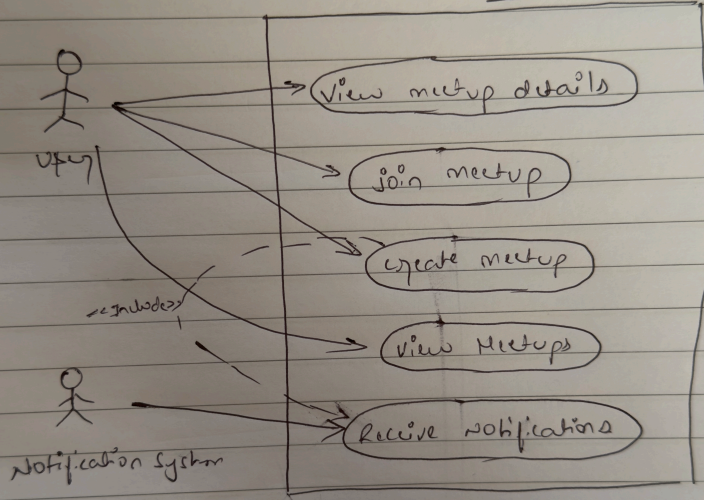 View meetup details
User
join meetup
create meetup
<<Include>>
View Meetups
Receive Notifications
Notification System